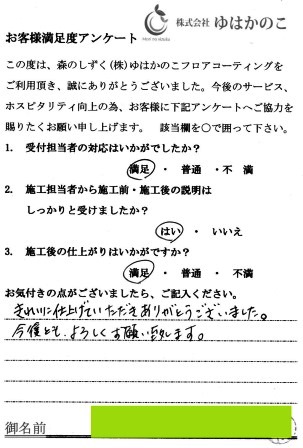 株式会社 ゆはかのこ
Mori no shizuku
お客様満足度アンケート
この度は、森のしずく(株)ゆはかのこフロアコーティングを
ご利用頂き、誠にありがとうございました。今後のサービス、
ホスピタリティ向上の為、お客様に下記アンケートへご協力を
賜りたくお願い申し上げます。 該当欄を〇で囲って下さい。
1. 受付担当者の対応はいかがでしたか?
満足 ・ 普通 ・不 満
2. 施工担当者から施工前・施工後の説明は
しっかりと受けましたか?
はい ・ いいえ
3. 施工後の仕上がりはいかがですか?
満足 ・ 普通 ・ 不満
お気付きの点がございましたら、ご記入ください。
きれいに仕上げていただきありがとうございました。
今後とも、よろしくお願い致します。
御名前